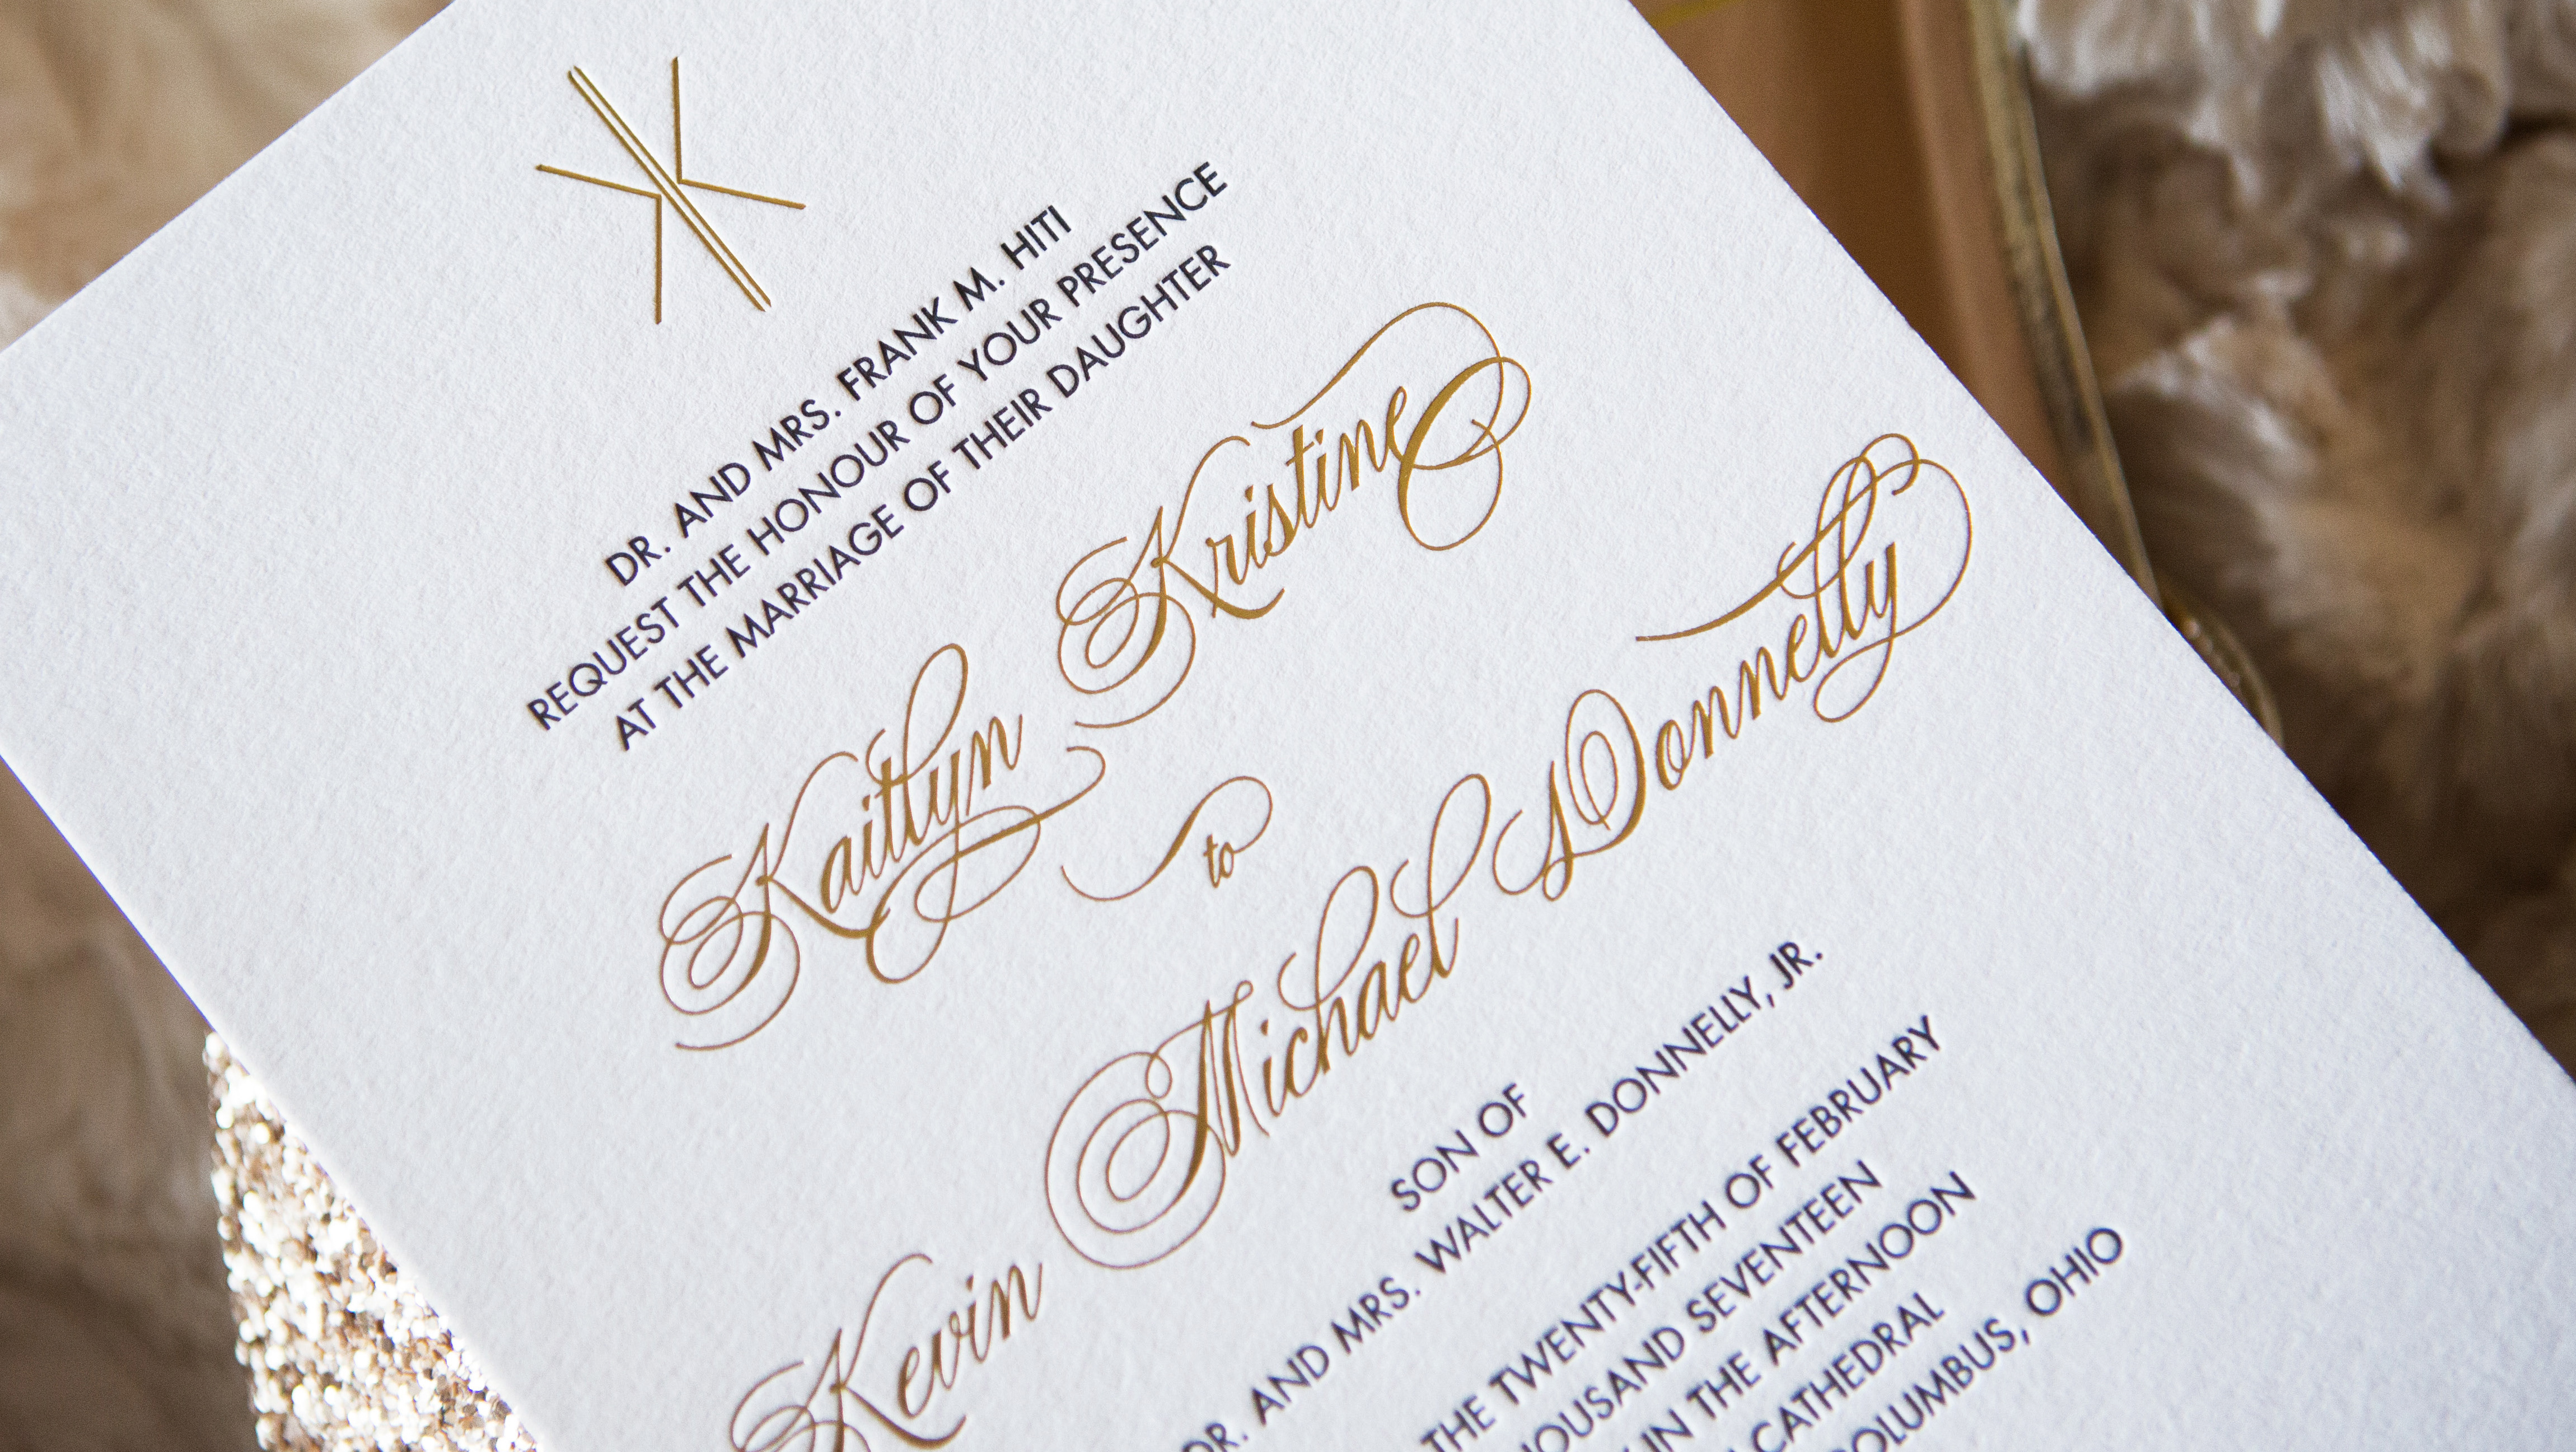 DR. AND MRS. FRANK M. HITI
REQUEST THE HONOUR OF YOUR PRESENCE
AT THE MARRIAGE OF THEIR DAUGHTER
Kaitlyn Kristine
to
Kevin Michael Donnelly
SON OF
DR. AND MRS. WALTER E. DONNELLY, JR.
THE TWENTY-FIFTH OF FEBRUARY
SEVENTEEN
IN THE AFTERNOON
CATHEDRAL
COLUMBUS, OHIO